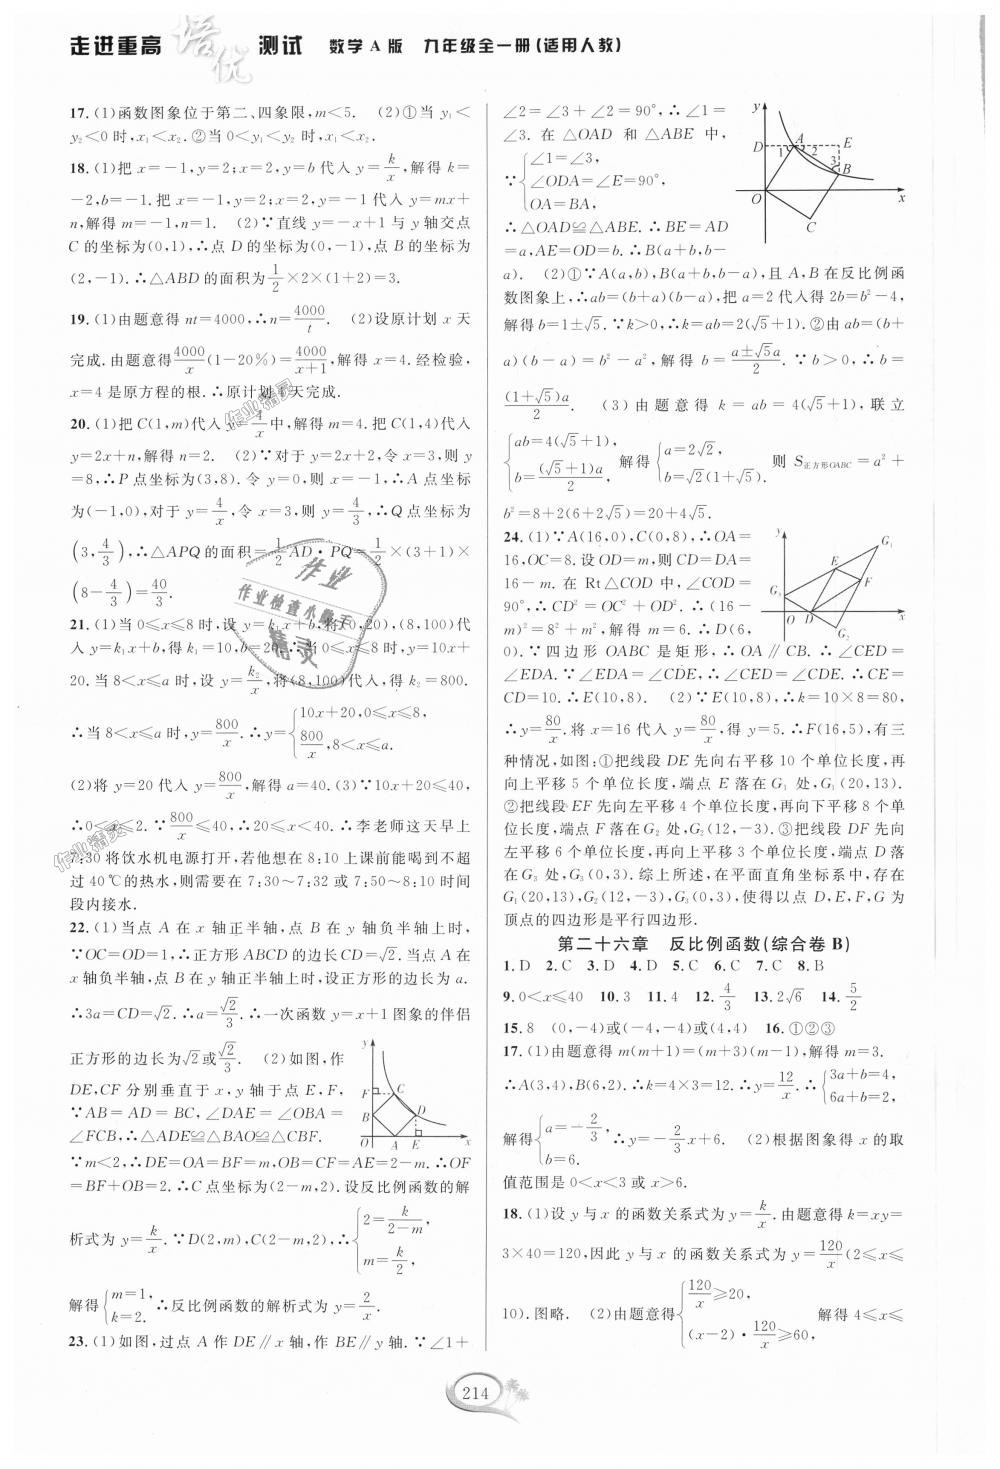 走进重高 培优 测试 数学A版 九年级全一册(适用人教)
17.(1)函数图象位于第二、四象限,m<5. (2)①当 y₁<
y₂<0 时,x₁<x₂.②当 0<y₁<y₂ 时,x₁<x₂.
18.(1)把 x=-1,y=2;x=2,y=b 代入 y=k/x,解得 k=
-2,b=-1.把 x=-1,y=2;x=2,y=-1 代入 y=mx+
n,解得 m=-1,n=1. (2)∵直线 y=-x+1 与 y 轴交点
C 的坐标为(0,1),∴点 D 的坐标为(0,-1),点 B 的坐标为
(2,-1).∴△ABD 的面积为1/2×2×(1+2)=3.
19.(1)由题意得 nt=4000,∴n=4000/t. (2)设原计划 x 天
完成.由题意得4000/x(1-20%)=4000/(x+1),解得 x=4.经检验,
x=4 是原方程的根.∴原计划 4 天完成.
20.(1)把 C(1,m)代入 y=4/x中,解得 m=4.把 C(1,4)代入
y=2x+n,解得 n=2. (2)∵对于 y=2x+2,令 x=3,则 y
=8,∴P 点坐标为(3,8).令 y=0,则 x=-1,∴A 点坐标
为(-1,0),对于 y=4/x,令 x=3,则 y=4/3,∴Q 点坐标为
(3,4/3),∴△APQ 的面积=1/2 AD·PQ=1/2×(3+1)×
(8-4/3)=40/3.
21.(1)当 0≤x≤8 时,设 y=k₁x+b,将(0,20),(8,100)代
入 y=k₁x+b,得 k₁=10,b=20.∴当 0≤x≤8 时,y=10x+
20.当 8<x≤a 时,设 y=k₂/x,将(8,100)代入,得 k₂=800.
∴当 8<x≤a 时,y=800/x.∴y={10x+20,0≤x≤8,
800/x,8<x≤a.
(2)将 y=20 代入 y=800/x,解得 a=40.(3)∵10x+20≤40,
∴0≤x≤2.∵800/x≤40,∴20≤x<40.∴李老师这天早上
7:30 将饮水机电源打开,若他想在 8:10 上课前能喝到不超
过 40℃的热水,则需要在 7:30～7:32 或 7:50～8:10 时间
段内接水.
22.(1)当点 A 在 x 轴正半轴,点 B 在 y 轴负半轴上时,
∵OC=OD=1,∴正方形 ABCD 的边长 CD=√2.当点 A 在
x 轴负半轴,点 B 在 y 轴正半轴上时,设正方形的边长为 a.
∴3a=CD=√2.∴a=√2/3.∴一次函数 y=x+1 图象的伴侣
正方形的边长为√2或√2/3. (2)如图,作
DE,CF 分别垂直于 x,y 轴于点 E,F,
∵AB=AD=BC,∠DAE=∠OBA=
∠FCB,∴△ADE≌△BAO≌△CBF.
∵m<2,∴DE=OA=BF=m,OB=CF=AE=2-m.∴OF
=BF+OB=2.∴C 点坐标为(2-m,2).设反比例函数的解
析式为 y=k/x.∵D(2,m),C(2-m,2),∴{2=k/(2-m),
m=k/2,
解得{m=1, k=2.∴反比例函数的解析式为 y=2/x.
23.(1)如图,过点 A 作 DE∥x 轴,作 BE∥y 轴.∵∠1+
∠2=∠3+∠2=90°,∴∠1=
∠3.在△OAD 和△ABE 中,
∵{∠1=∠3,
∠ODA=∠E=90°,
OA=BA,
∴△OAD≌△ABE.∴BE=AD
=a,AE=OD=b.∴B(a+b,b-
a). (2)①∵A(a,b),B(a+b,b-a),且 A,B 在反比例函
数图象上,∴ab=(b+a)(b-a),把 a=2 代入得 2b=b²-4,
解得 b=1±√5.∵k>0,∴k=ab=2(√5+1).②由 ab=(b+
a)(b-a)=b²-a²,解得 b=(a±√5a)/2.∵b>0,∴b=
(1+√5)a/2. (3)由题意得 k=ab=4(√5+1),联立
{ab=4(√5+1),
b=(√5+1)a/2, 解得{a=2√2,
b=√2(1+√5). 则 S正方形OABC=a²+
b²=8+2(6+2√5)=20+4√5.
24.(1)∵A(16,0),C(0,8),∴OA=
16,OC=8.设 OD=m,则 CD=DA=
16-m.在 Rt△COD 中,∠COD=
90°,∴CD²=OC²+OD².∴(16-
m)²=8²+m².解得 m=6.∴D(6,
0).∵四边形 OABC 是矩形,∴OA∥CB.∴∠CED=
∠EDA.∵∠EDA=∠CDE,∴∠CED=∠CDE.∴CE=
CD=10.∴E(10,8). (2)∵E(10,8),∴k=10×8=80,
∴y=80/x.将 x=16 代入 y=80/x,得 y=5.∴F(16,5),有三
种情况,如图:①把线段 DE 先向右平移 10 个单位长度,再
向上平移 5 个单位长度,端点 E 落在 G₁ 处,G₁(20,13).
②把线段 EF 先向左平移 4 个单位长度,再向下平移 8 个单
位长度,端点 F 落在 G₂ 处,G₂(12,-3).③把线段 DF 先向
左平移 6 个单位长度,再向上平移 3 个单位长度,端点 D 落
在 G₃ 处,G₃(0,3).综上所述,在平面直角坐标系中,存在
G₁(20,13),G₂(12,-3),G₃(0,3),使得以点 D,E,F,G 为
顶点的四边形是平行四边形.
第二十六章 反比例函数(综合卷 B)
1.D 2.C 3.D 4.D 5.C 6.C 7.C 8.B
9.0<x≤40 10.3 11.4 12.4/3 13.2√6 14.5/2
15.8 (0,-4)或(-4,-4)或(4,4) 16.①②③
17.(1)由题意得 m(m+1)=(m+3)(m-1),解得 m=3.
∴A(3,4),B(6,2).∴k=4×3=12.∴y=12/x.∴{3a+b=4,
6a+b=2,
解得{a=-2/3,
b=6. ∴y=-2/3x+6. (2)根据图象得 x 的取
值范围是 0<x<3 或 x>6.
18.(1)设 y 与 x 的函数关系式为 y=k/x.由题意得 k=xy=
3×40=120,因此 y 与 x 的函数关系式为 y=120/x(2≤x≤
10).图略. (2)由题意得{120/x≥20,
(x-2)·120/x≥60, 解得 4≤x≤
214
y
D
A
E
1
2
3
B
O
x
C
y
F
C
B
D
O
A
E
x
y
G₁
E
F
G₃
O
D
x
G₂
作业精灵
作业
作业检查小助手
精灵
作业精灵